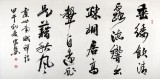 垂緌飲清
露流響出
疏桐居高
聲自遠非
是藉秋風
虞世南